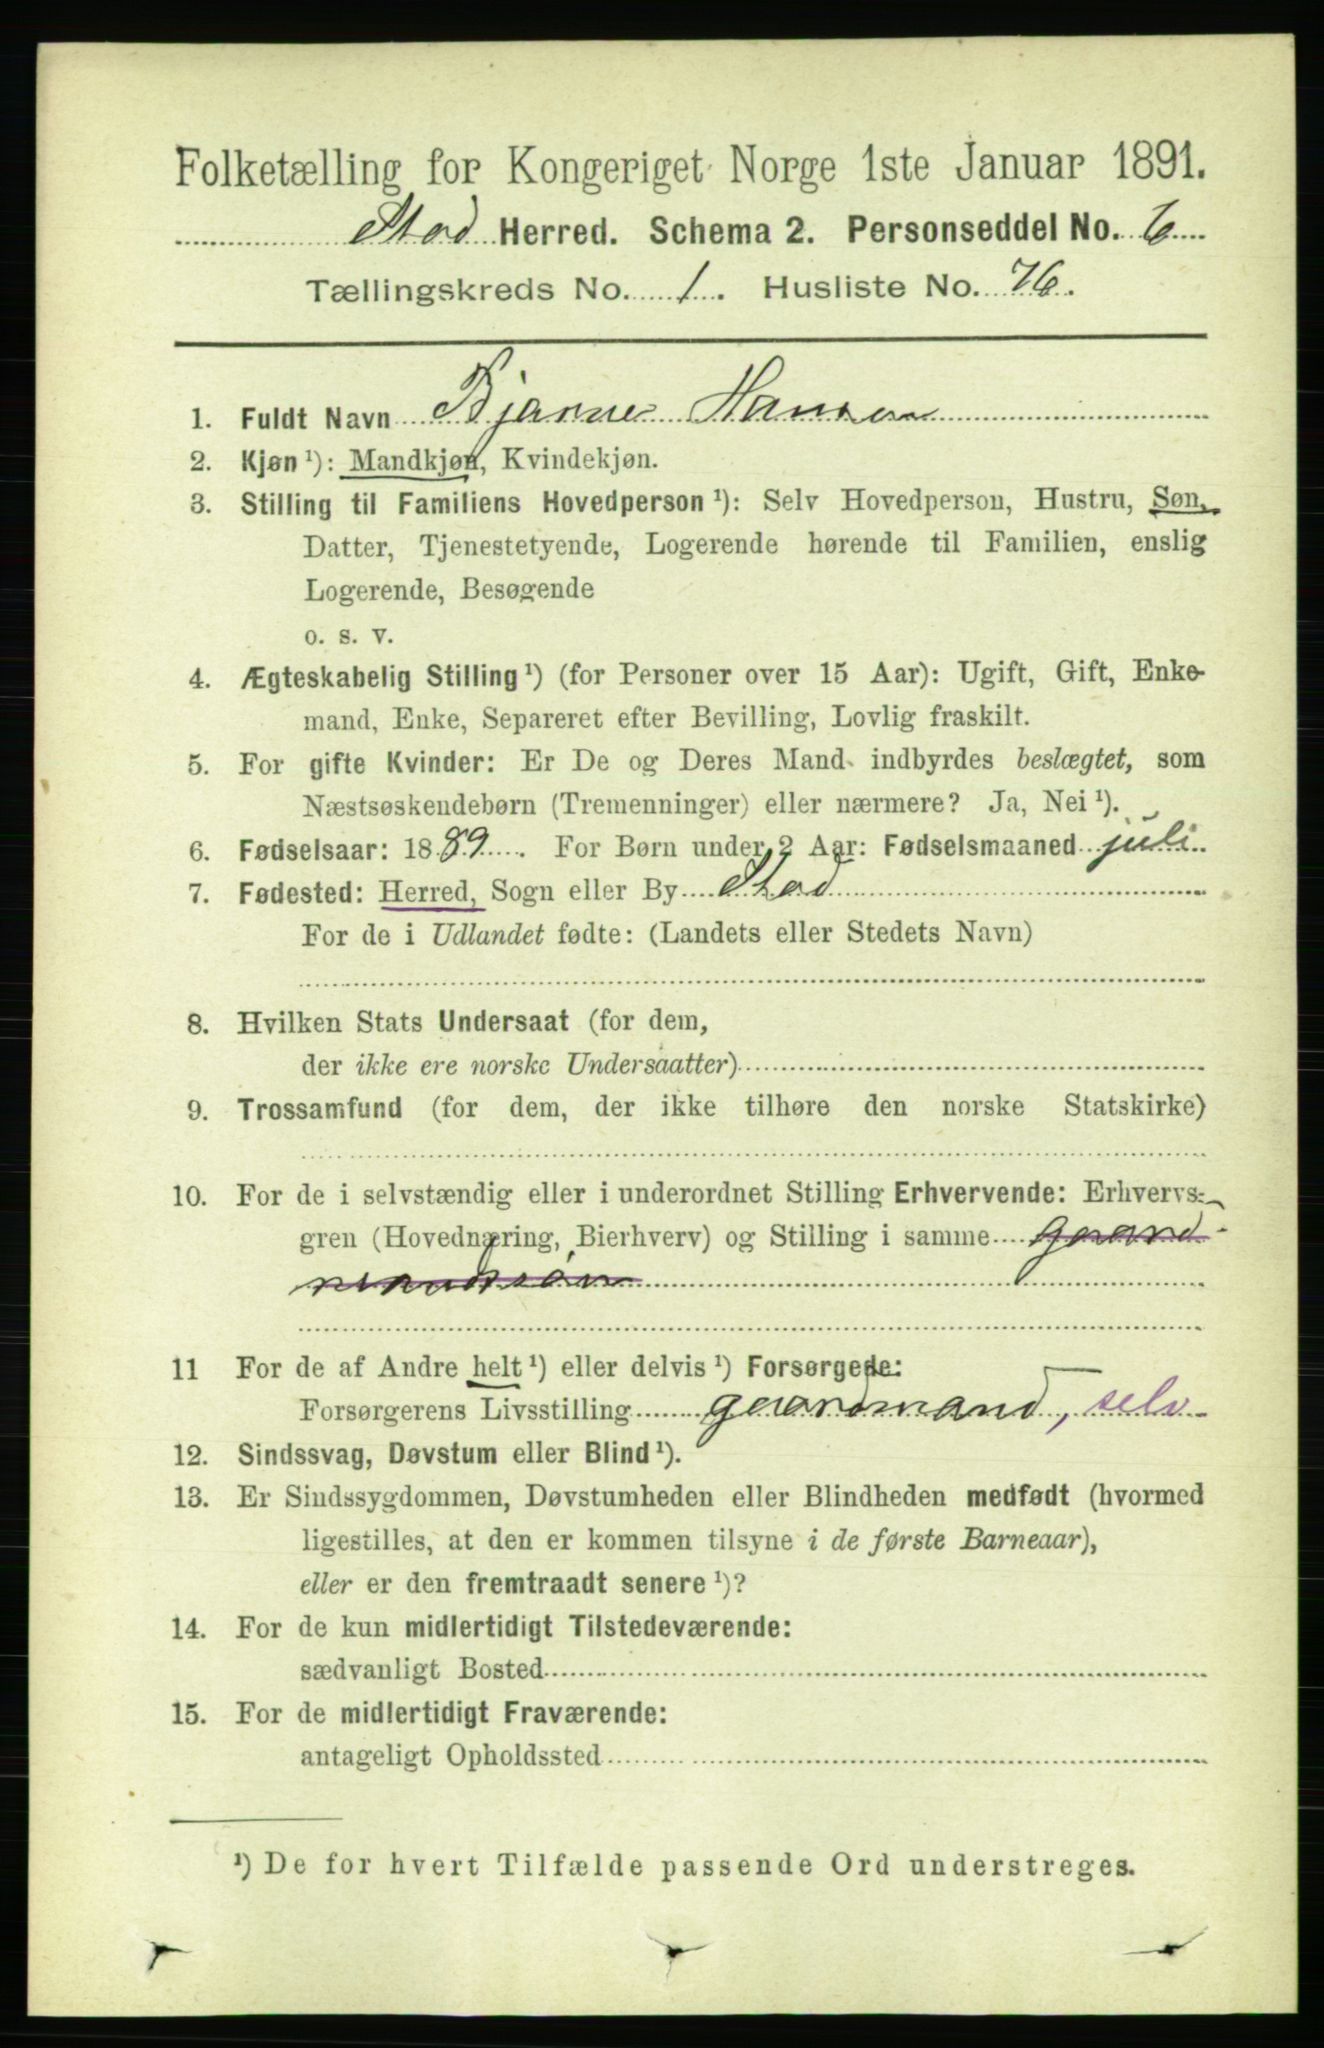 Folketælling for Kongeriget Norge 1ste Januar 1891.
Stod Herred. Schema 2. Personseddel No. 6
Tællingskreds No. 1. Husliste No. 76.
1. Fuldt Navn Bjarne Hansen
2. Kjøn ¹): Mandkjøn, Kvindekjøn.
3. Stilling til Familiens Hovedperson ¹): Selv Hovedperson, Hustru, Søn,
Datter, Tjenestetyende, Logerende hørende til Familien, enslig
Logerende, Besøgende
o. s. v.
4. Ægteskabelig Stilling ¹) (for Personer over 15 Aar): Ugift, Gift, Enke-
mand, Enke, Separeret efter Bevilling, Lovlig fraskilt.
5. For gifte Kvinder: Er De og Deres Mand indbyrdes beslægtet, som
Næstsøskendebørn (Tremenninger) eller nærmere? Ja, Nei ¹).
6. Fødselsaar: 1889. For Børn under 2 Aar: Fødselsmaaned juli
7. Fødested: Herred, Sogn eller By Stod
For de i Udlandet fødte: (Landets eller Stedets Navn)
8. Hvilken Stats Undersaat (for dem,
der ikke ere norske Undersaatter)
9. Trossamfund (for dem, der ikke tilhøre den norske Statskirke)
10. For de i selvstændig eller i underordnet Stilling Erhvervende: Erhvervs-
gren (Hovednæring, Bierhverv) og Stilling i samme gaard-
mandssøn
11 For de af Andre helt ¹) eller delvis ¹) Forsørgede:
Forsørgerens Livsstilling gaardmand, selv
12. Sindssvag, Døvstum eller Blind ¹).
13. Er Sindssygdommen, Døvstumheden eller Blindheden medfødt (hvormed
ligestilles, at den er kommen tilsyne i de første Barneaar),
eller er den fremtraadt senere ¹)?
14. For de kun midlertidigt Tilstedeværende:
sædvanligt Bosted
15. For de midlertidigt Fraværende:
antageligt Opholdssted
¹) De for hvert Tilfælde passende Ord understreges.